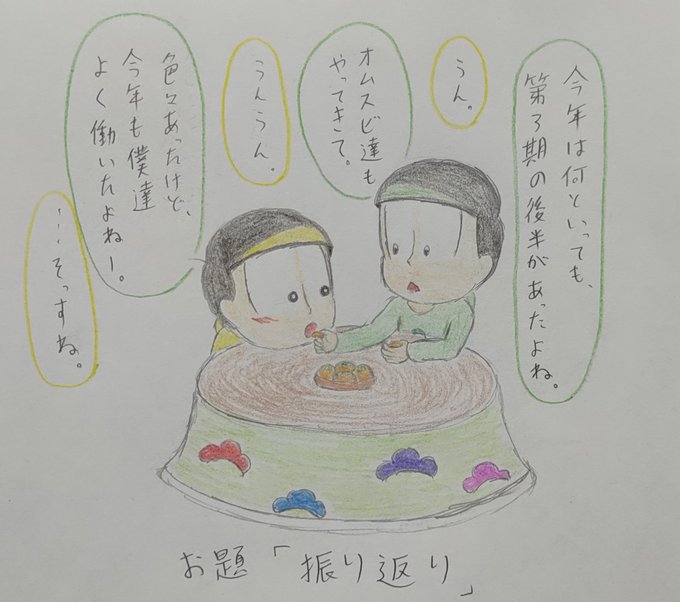 今年は何といっても、
第3期の後半があったよね。
うん。
オムスビ達も
やってきて。
うんうん。
色々あったけど、
今年も僕達
よく働いたよねー。
…そっすね。
お題「振り返り」